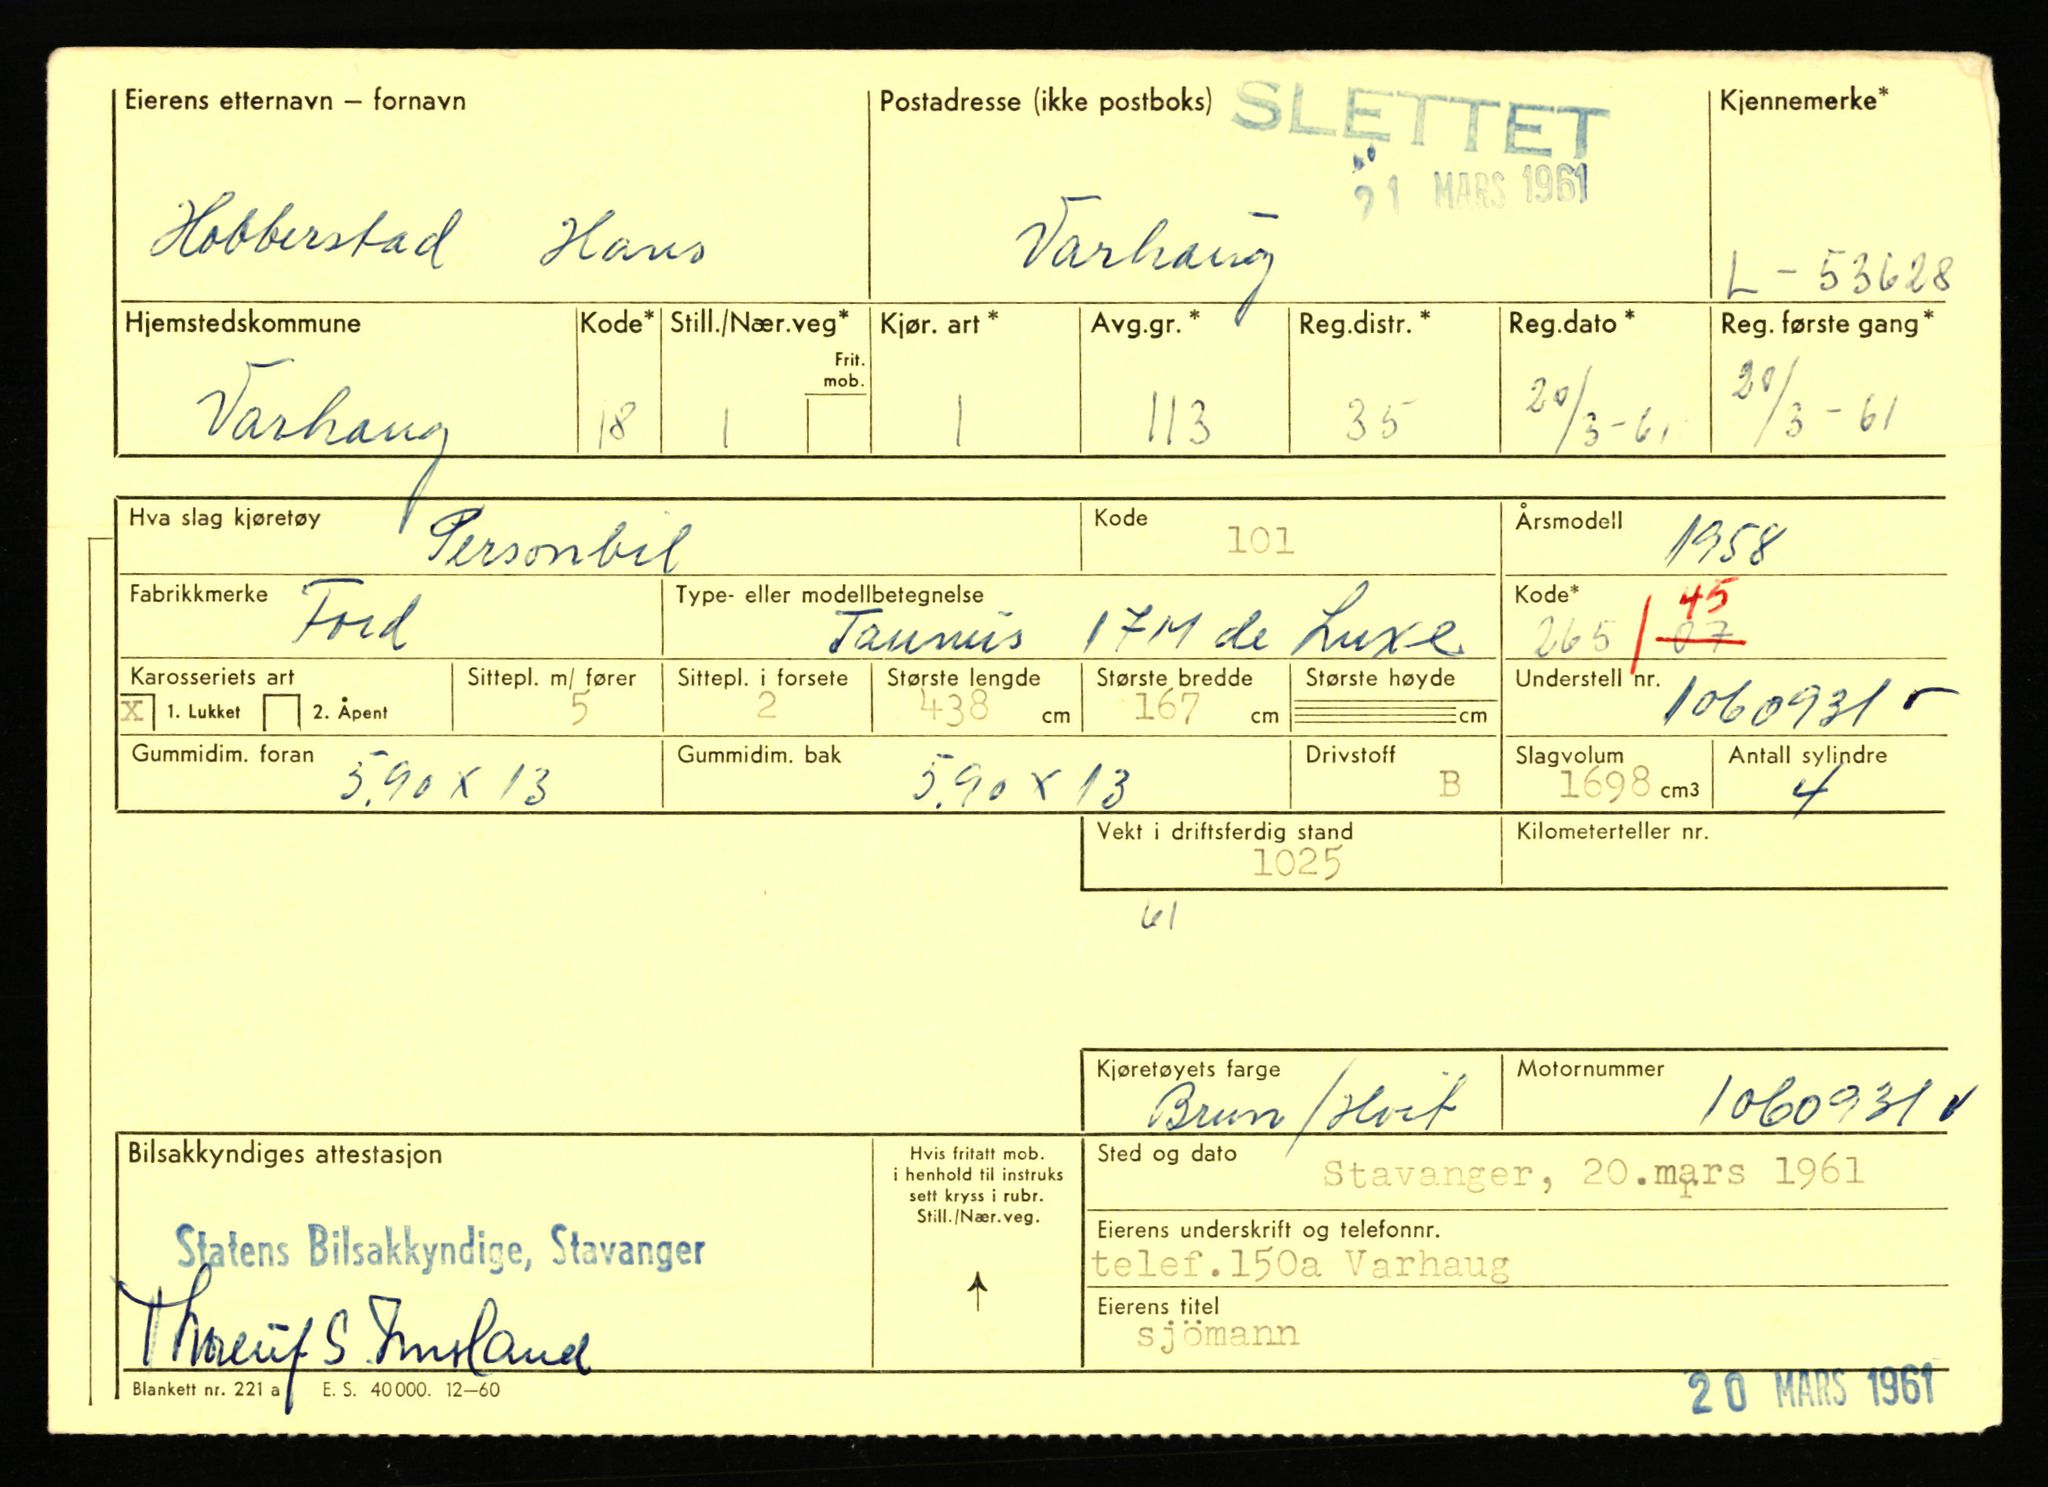 Eierens etternavn – fornavn
Postadresse (ikke postboks)
SLETTET
21 MARS 1961
Kjennemerke*
Hobberstad Hans
Varhaug
L - 53628
Hjemstedskommune
Kode*
Still./Nær.veg*
Frit. mob.
Kjør. art *
Avg.gr. *
Reg.distr. *
Reg.dato *
Reg. første gang *
Varhaug
18
1
1
113
35
20/3-61
20/3-61
Hva slag kjøretøy
Personbil
Kode
101
Årsmodell
1958
Fabrikkmerke
Ford
Type- eller modellbetegnelse
Taunus 17M de Luxe
Kode*
45
265 / 07
Karosseriets art
X 1. Lukket 2. Åpent
Sittepl. m/ fører
5
Sittepl. i forsete
2
Største lengde
438 cm
Største bredde
167 cm
Største høyde
cm
Understell nr.
1060931
Gummidim. foran
5.90 x 13
Gummidim. bak
5.90 x 13
Drivstoff
B
Slagvolum
1698 cm3
Antall sylindre
4
Vekt i driftsferdig stand
1025
Kilometerteller nr.
61
Kjøretøyets farge
Brun / Hvit
Motornummer
1060931
Bilsakkyndiges attestasjon
Statens Bilsakkyndige, Stavanger
Hvis fritatt mob.
i henhold til instruks
sett kryss i rubr.
Still./Nær.veg.
Sted og dato
Stavanger, 20.mars 1961
Eierens underskrift og telefonnr.
telef.150a Varhaug
Eierens titel
sjömann
Blankett nr. 221 a E. S. 40 000. 12—60
20 MARS 1961